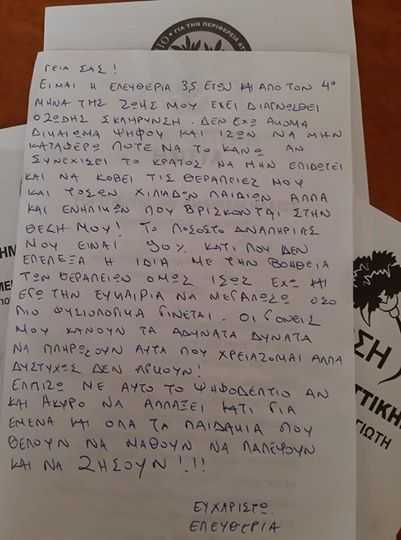 ΓΙΑ ΤΗΝ ΠΕΡΙΦΕΡΕΙΑ
ΓΕΙΑ ΣΑΣ!
ΕΙΜΑΙ Η ΕΛΕΥΘΕΡΙΑ 3,5 ΕΤΩΝ ΚΑΙ ΑΠΟ ΤΟΝ 4º
ΜΗΝΑ ΤΗΣ ΖΩΗΣ ΜΟΥ ΕΧΕΙ ΔΙΑΓΝΩΣΘΕΙ
ΟΖΩΔΗΣ ΣΚΛΗΡΥΝΣΗ. ΔΕΝ ΕΧΩ ΑΚΟΜΑ
ΔΙΚΑΙΩΜΑ ΨΗΦΟΥ ΚΑΙ ΙΣΩΣ ΝΑ ΜΗΝ
ΚΑΤΑΦΕΡΩ ΠΟΤΕ ΝΑ ΤΟ ΚΑΝΩ ΑΝ
ΣΥΝΕΧΙΣΕΙ ΤΟ ΚΡΑΤΟΣ ΝΑ ΜΗΝ ΕΠΙΔΟΤΕΙ
ΚΑΙ ΝΑ ΚΟΒΕΙ ΤΙΣ ΘΕΡΑΠΕΙΕΣ ΜΟΥ
ΚΑΙ ΤΟΣΩΝ ΧΙΛΙΑΔΩΝ ΠΑΙΔΙΩΝ ΑΛΛΑ
ΚΑΙ ΕΝΗΛΙΚΩΝ ΠΟΥ ΒΡΙΣΚΟΝΤΑΙ ΣΤΗΝ
ΘΕΣΗ ΜΟΥ! ΤΟ ΠΟΣΟΣΤΟ ΑΝΑΠΗΡΙΑΣ
ΜΟΥ ΕΙΝΑΙ 90% ΚΑΤΙ ΠΟΥ ΔΕΝ
ΕΠΕΛΕΞΑ Η ΙΔΙΑ ΜΕ ΤΗΝ ΒΟΗΘΕΙΑ
ΤΩΝ ΘΕΡΑΠΕΙΩΝ ΟΜΩΣ ΙΣΩΣ ΕΧΩ ΚΑΙ
ΕΓΩ ΤΗΝ ΕΥΚΑΙΡΙΑ ΝΑ ΜΕΓΑΛΩΣΩ ΟΣΟ
ΠΙΟ ΦΥΣΙΟΛΟΓΙΚΑ ΓΙΝΕΤΑΙ. ΟΙ ΓΟΝΕΙΣ
ΜΟΥ ΚΑΝΟΥΝ ΤΑ ΑΔΥΝΑΤΑ ΔΥΝΑΤΑ
ΝΑ ΠΛΗΡΩΣΟΥΝ ΑΥΤΑ ΠΟΥ ΧΡΕΙΑΖΟΜΑΙ ΑΛΛΑ
ΔΥΣΤΥΧΩΣ ΔΕΝ ΑΡΚΟΥΝ!
ΕΛΠΙΖΩ ΜΕ ΑΥΤΟ ΤΟ ΨΗΦΟΔΕΛΤΙΟ ΑΝ
ΚΑΙ ΑΚΥΡΟ ΝΑ ΑΛΛΑΞΕΙ ΚΑΤΙ ΓΙΑ
ΕΜΕΝΑ ΚΑΙ ΟΛΑ ΤΑ ΠΑΙΔΑΚΙΑ ΠΟΥ
ΘΕΛΟΥΝ ΝΑ ΜΑΘΟΥΝ ΝΑ ΠΑΛΕΨΟΥΝ
ΚΑΙ ΝΑ ΖΗΣΟΥΝ!!!
ΕΥΧΑΡΙΣΤΩ
ΕΛΕΥΘΕΡΙΑ